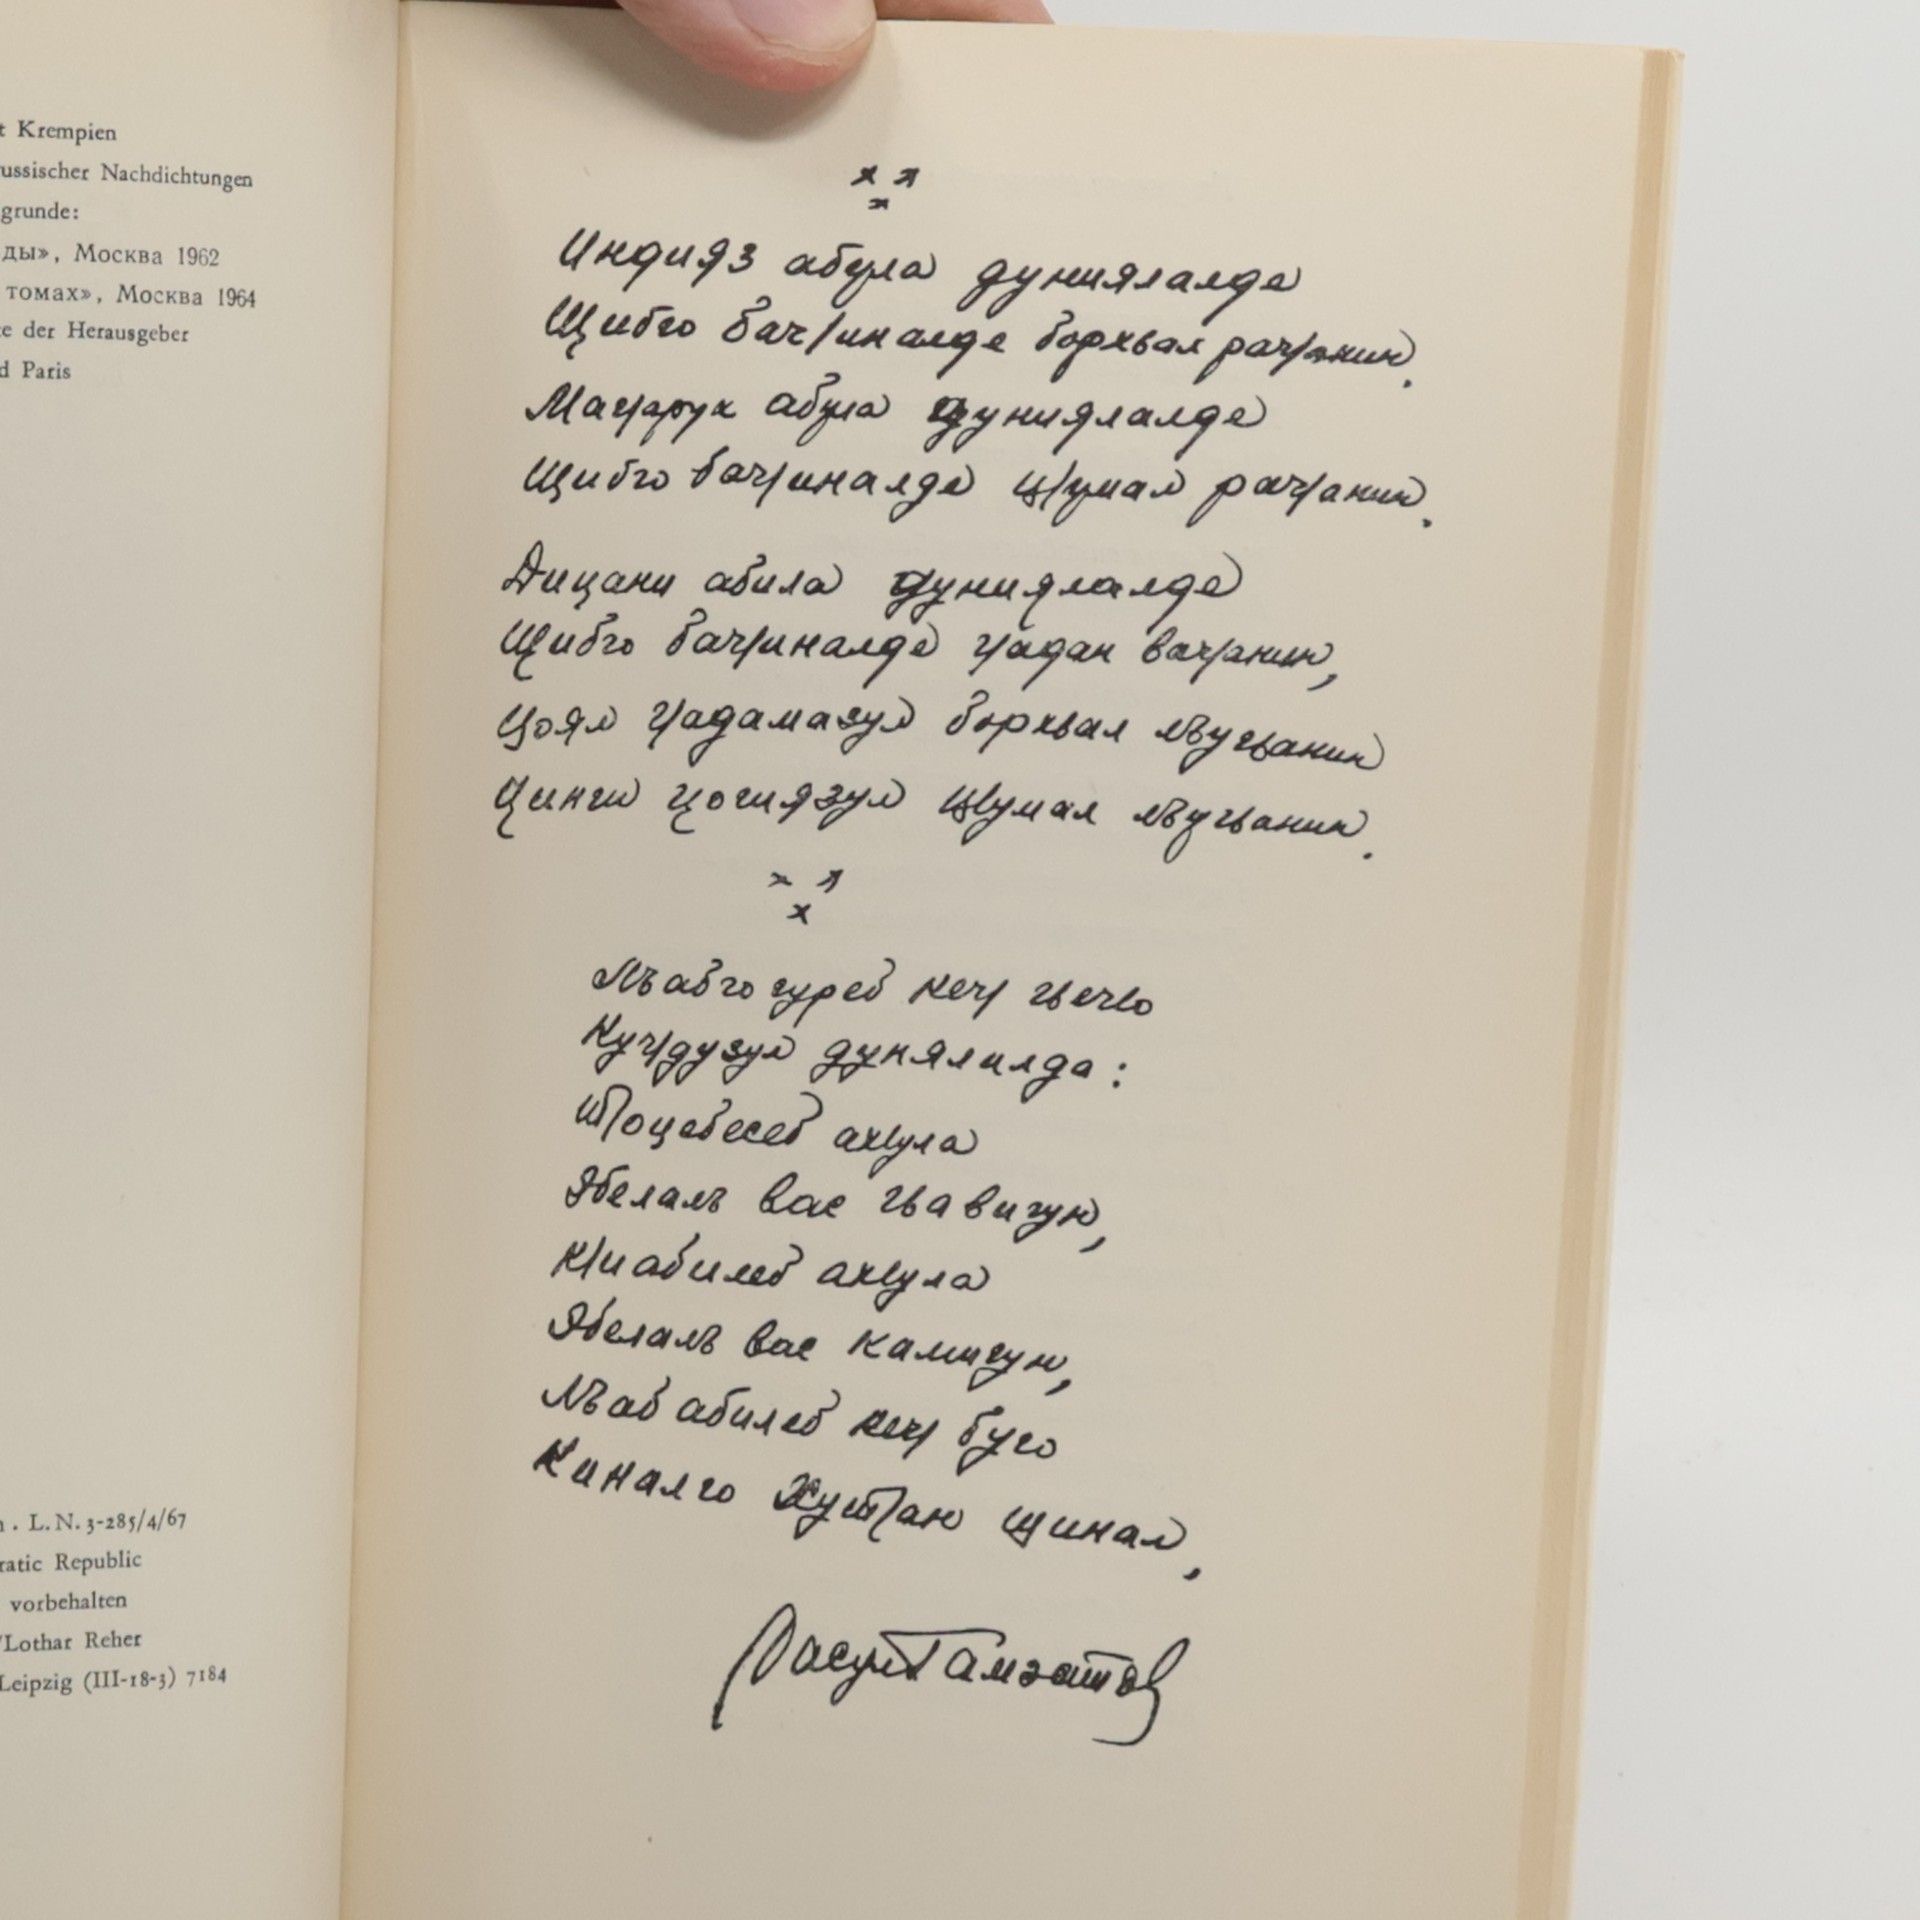 t Krempien
ussischer Nachdichtungen
grunde:
ды», Москва 1962
томах», Москва 1964
e der Herausgeber
d Paris
n. L.N. 3-285/4/67
ratic Republic
vorbehalten
/Lothar Reher
Leipzig (III-18-3) 7184
х х
х
Индияз абула дуниялалде
Щибго бачӀиналде борхьал рачӀанин.
МагӀарук абула дуниялалде
Щибго бачӀиналде цӀумал рачӀанин.
Дицани абила дуниялалде
Щибго бачӀиналде гӀадан вачӀанин,
Цоял гӀадамазул борхьал лъугьанин
Цинги цогиязул цӀумал лъугьанин.
х х
х
Лъабго гуреб кечӀ гьечӀо
КучӀдузул дунялалда:
ТӀоцебесеб ахӀула
Эбелалъ вас гьавигун,
КӀиабилеб ахӀула
Эбелалъ вас камигун,
Лъабабилеб кечӀ буго
Киналго хутӀан щинал,
Расул Гамзатов